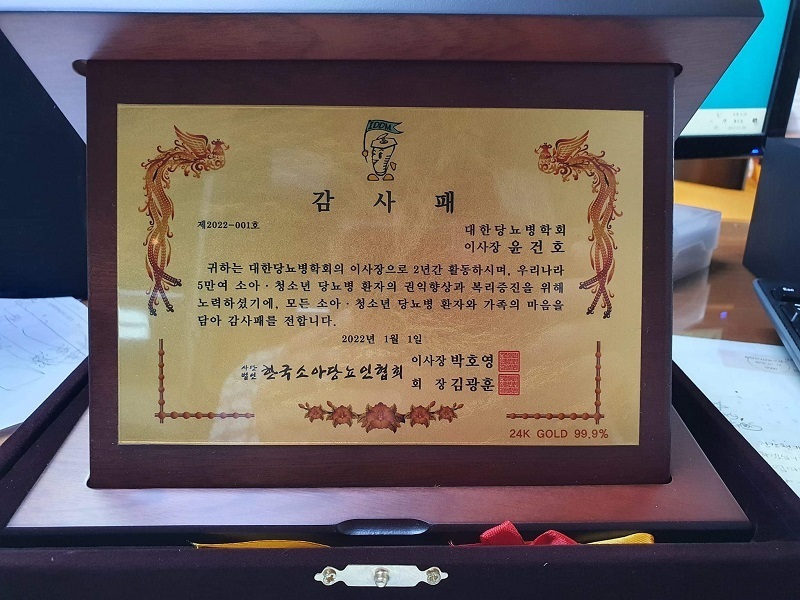 IDDM
감 사 패
제2022-001호
대한당뇨병학회
이사장 윤건호
귀하는 대한당뇨병학회의 이사장으로 2년간 활동하시며, 우리나라
5만여 소아·청소년 당뇨병 환자의 권익향상과 복리증진을 위해
노력하셨기에, 모든 소아·청소년 당뇨병 환자와 가족의 마음을
담아 감사패를 전합니다.
2022년 1월 1일
사단법인 한국소아당뇨인협회
이사장 박호영
회 장 김광훈
24K GOLD 99.9%